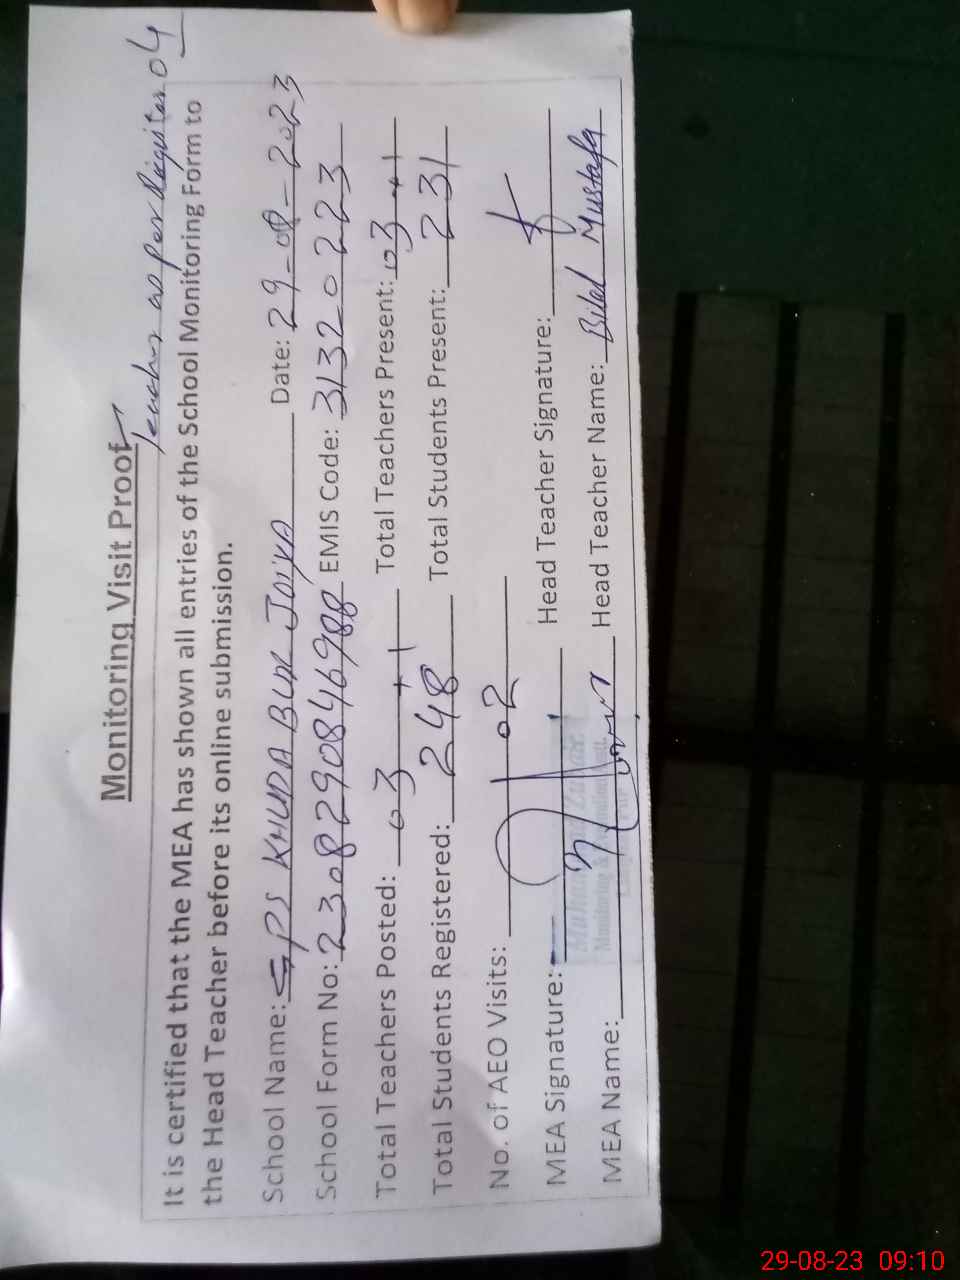 Monitoring Visit Proof
Teacher as per Register 04
It is certified that the MEA has shown all entries of the School Monitoring Form to
the Head Teacher before its online submission.
School Name: GPS KHUDA BUX JOIYA Date: 29-08-2023
School Form No: 230829084846988 EMIS Code: 31320223
Total Teachers Posted: 03 + 1 Total Teachers Present: 03 + 1
Total Students Registered: 248 Total Students Present: 231
No. of AEO Visits: 02
MEA Signature: Head Teacher Signature:
MEA Name: Head Teacher Name: Bilal Mustafa
29-08-23 09:10